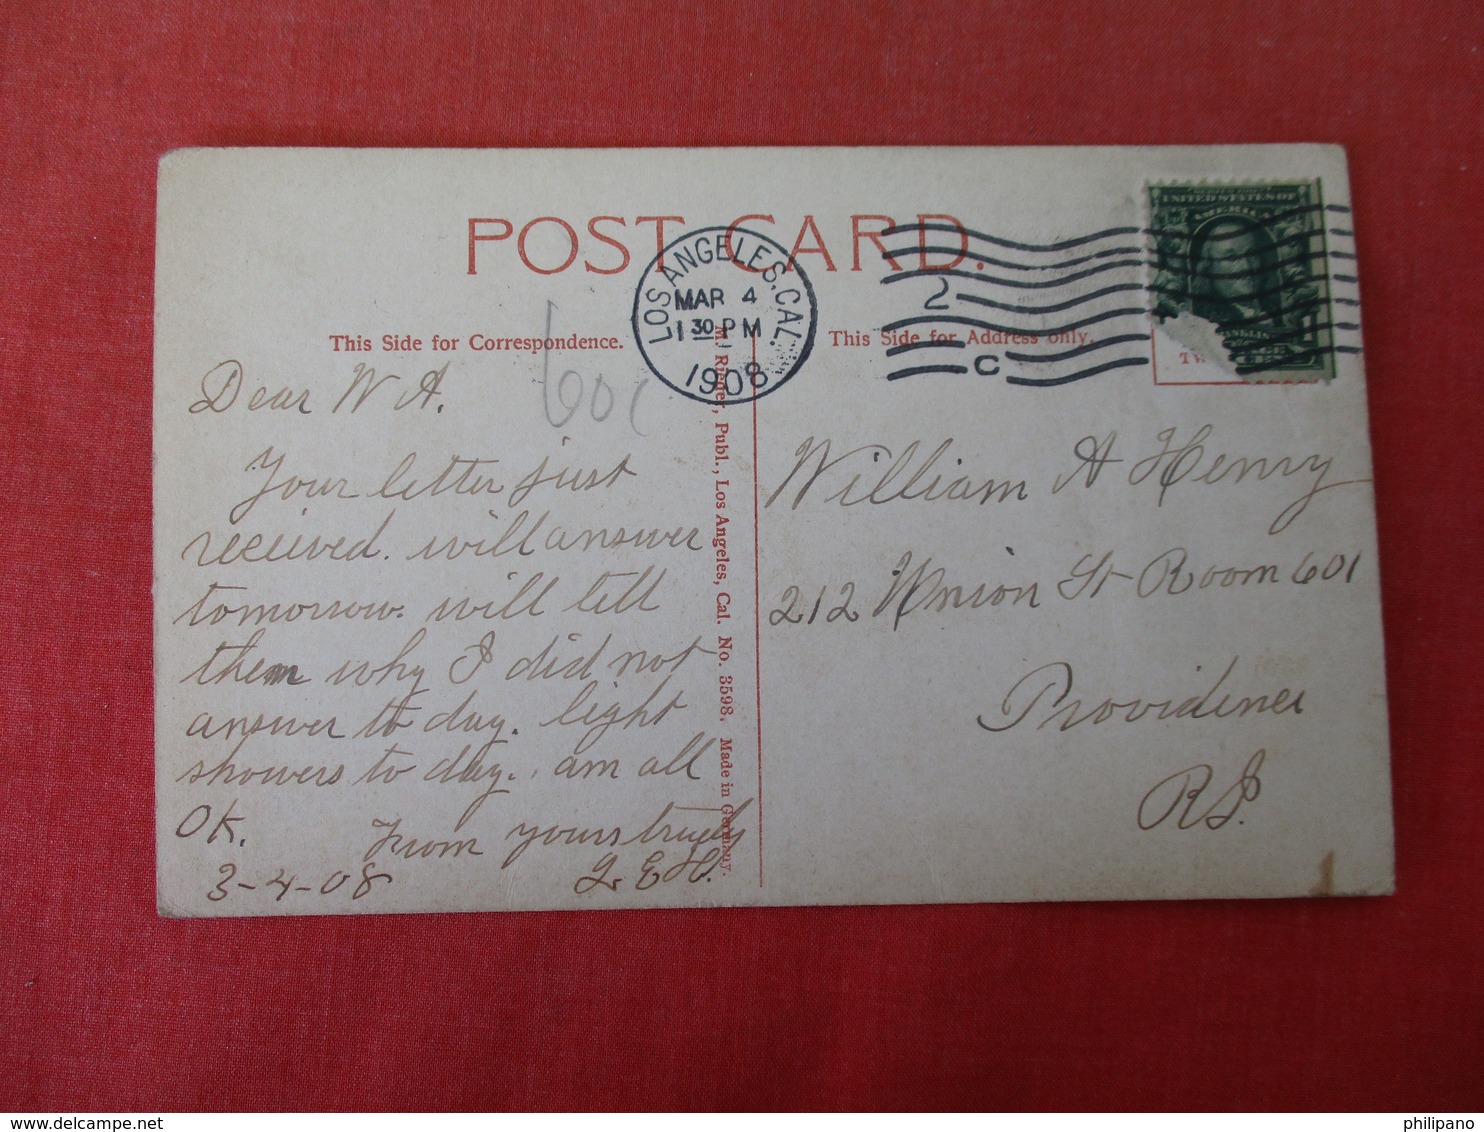 POST CARD.
This Side for Correspondence.
This Side for Address only.
LOS ANGELES, CAL.
MAR 4
1 30 PM
1908
2
C
UNITED STATES OF
AMERICA
TW
60c
Dear W A.
Your letter just
received. will answer
tomorrow. will tell
them why I did not
answer to day. light
showers to day. am all
OK.
From yours truely
L. E. H.
3-4-08
M. Rieder, Publ., Los Angeles, Cal. No. 3598. Made in Germany.
William A Henry
212 Union St Room 601
Providence
R I.
delcampe.net
philipano